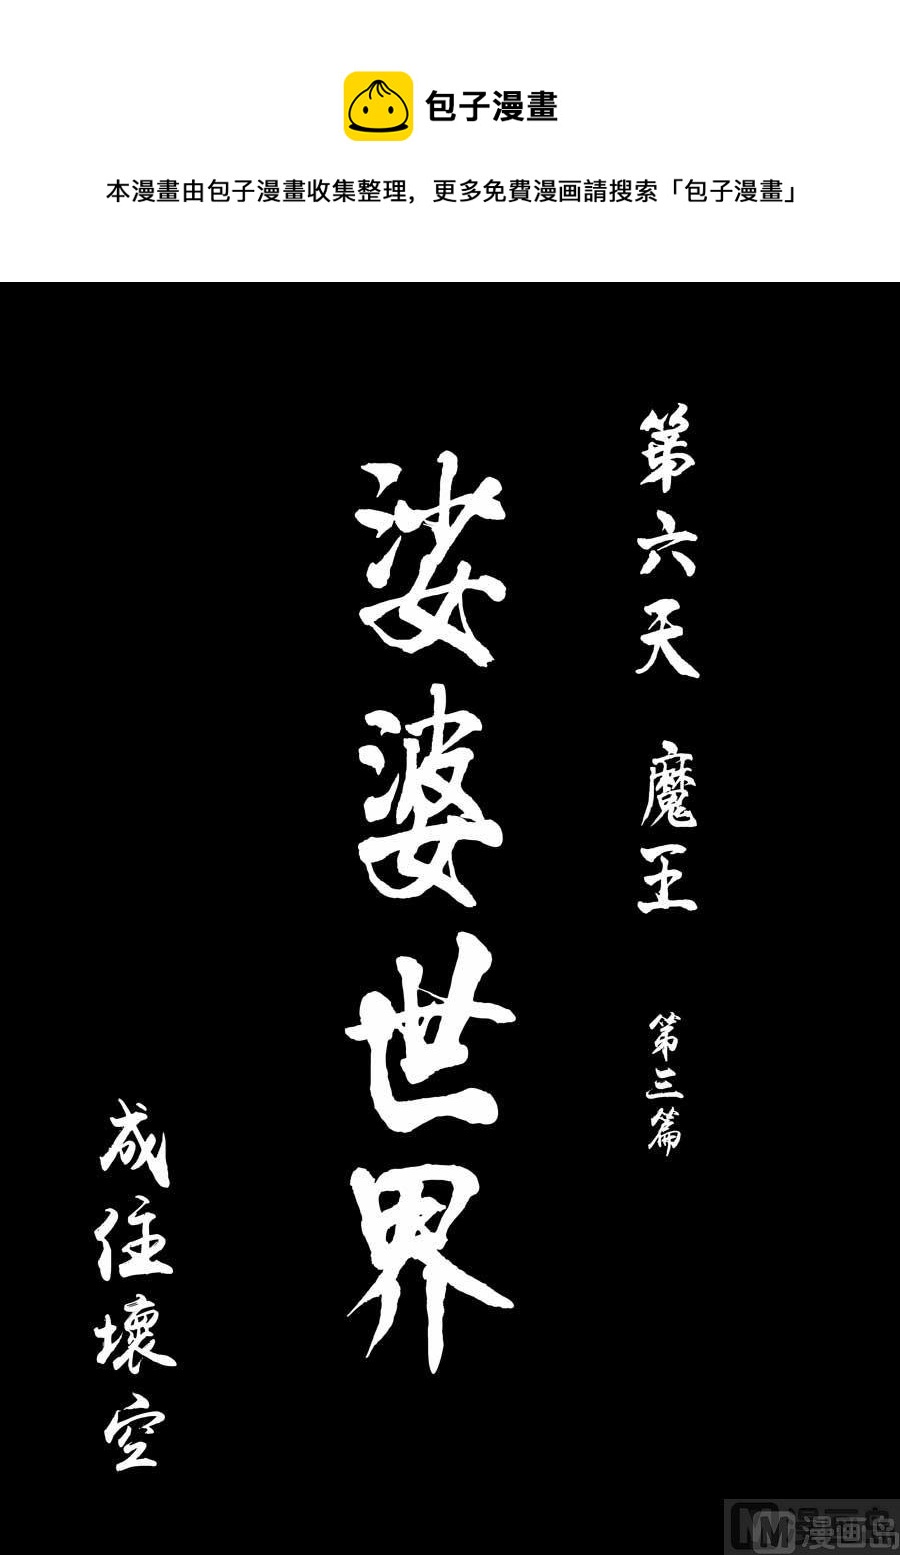 包子漫畫
本漫畫由包子漫畫收集整理，更多免費漫画請搜索「包子漫畫」
第六天 魔王 第三篇
娑婆世界
成住壞空
漫画岛